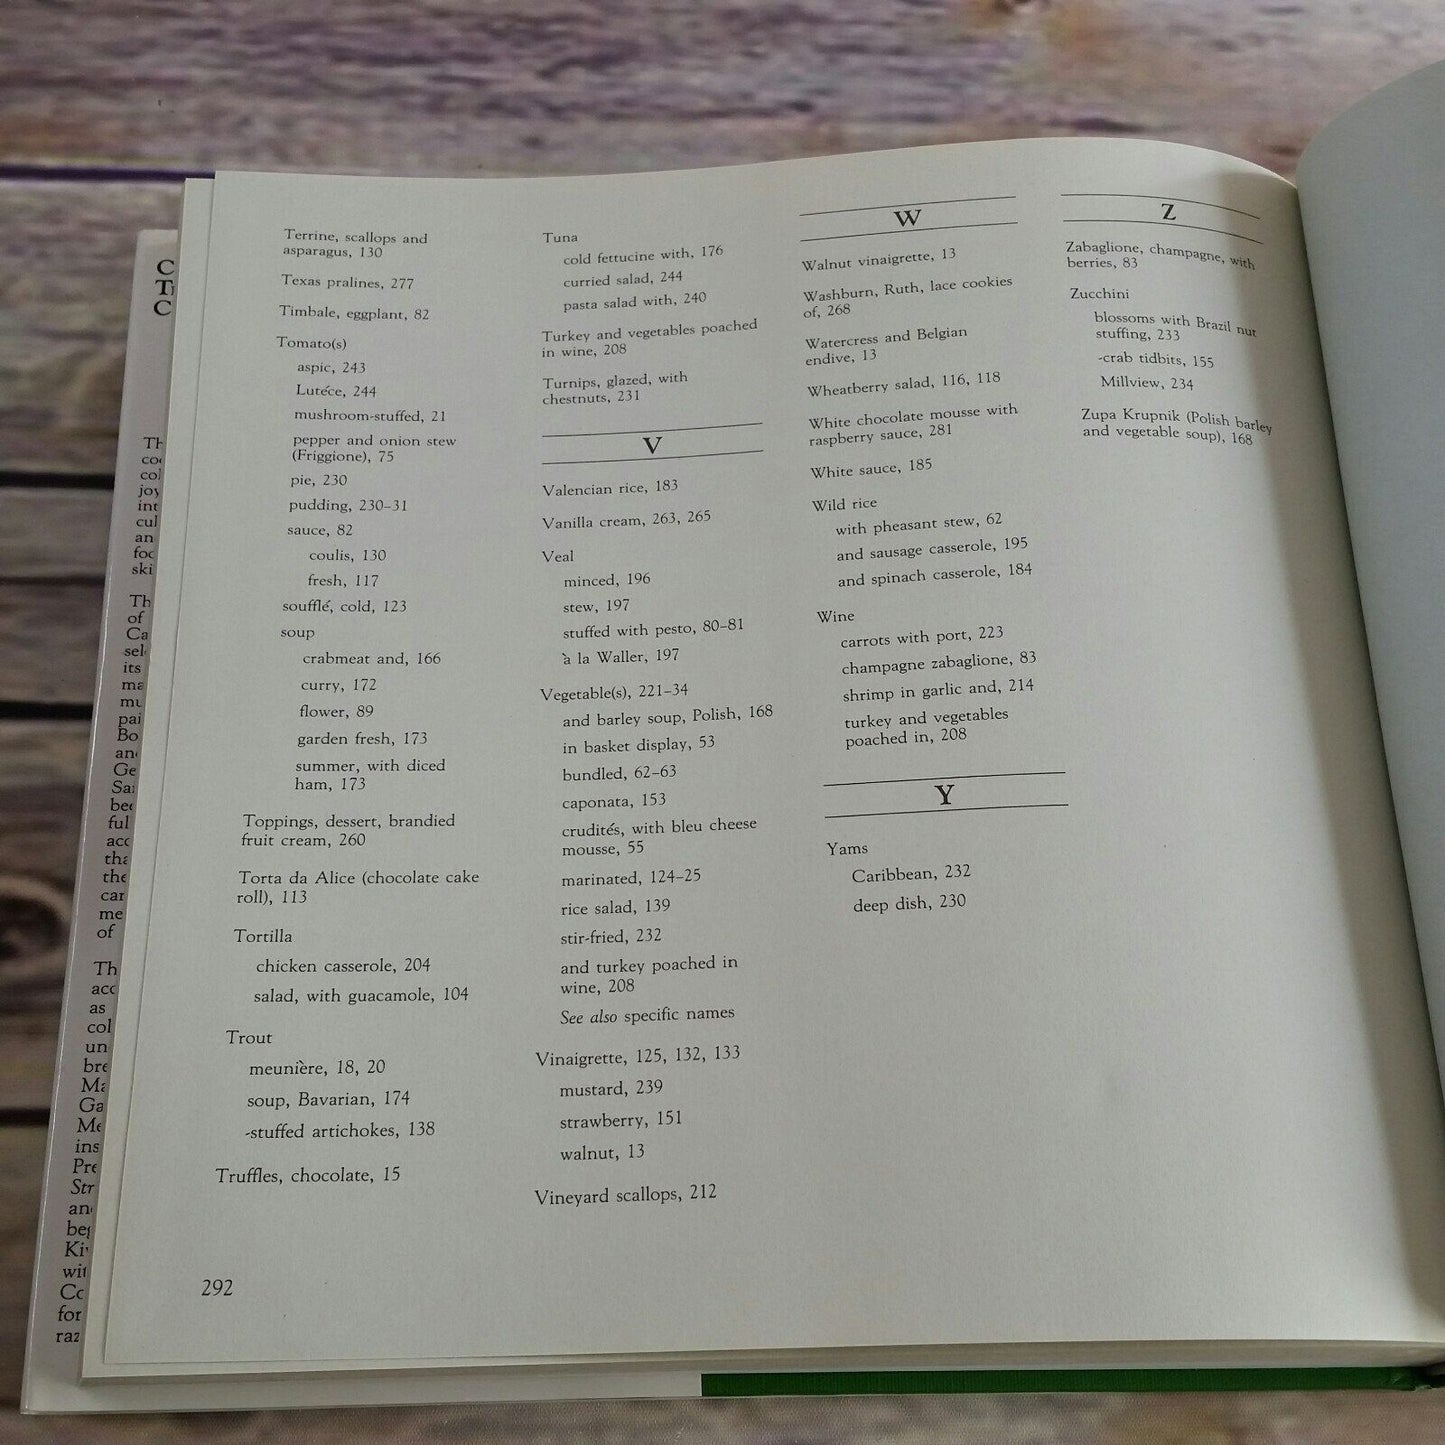 Terrine, scallops and
asparagus, 130
Texas pralines, 277
Timbale, eggplant, 82
Tomato(s)
aspic, 243
Lutéce, 244
mushroom-stuffed, 21
pepper and onion stew
(Friggione), 75
pie, 230
pudding, 230–31
sauce, 82
coulis, 130
fresh, 117
soufflé, cold, 123
soup
crabmeat and, 166
curry, 172
flower, 89
garden fresh, 173
summer, with diced
ham, 173
Toppings, dessert, brandied
fruit cream, 260
Torta da Alice (chocolate cake
roll), 113
Tortilla
chicken casserole, 204
salad, with guacamole, 104
Trout
meunière, 18, 20
soup, Bavarian, 174
-stuffed artichokes, 138
Truffles, chocolate, 15
Tuna
cold fettucine with, 176
curried salad, 244
pasta salad with, 240
Turkey and vegetables poached
in wine, 208
Turnips, glazed, with
chestnuts, 231
V
Valencian rice, 183
Vanilla cream, 263, 265
Veal
minced, 196
stew, 197
stuffed with pesto, 80–81
à la Waller, 197
Vegetable(s), 221–34
and barley soup, Polish, 168
in basket display, 53
bundled, 62–63
caponata, 153
crudités, with bleu cheese
mousse, 55
marinated, 124–25
rice salad, 139
stir-fried, 232
and turkey poached in
wine, 208
See also specific names
Vinaigrette, 125, 132, 133
mustard, 239
strawberry, 151
walnut, 13
Vineyard scallops, 212
W
Walnut vinaigrette, 13
Washburn, Ruth, lace cookies
of, 268
Watercress and Belgian
endive, 13
Wheatberry salad, 116, 118
White chocolate mousse with
raspberry sauce, 281
White sauce, 185
Wild rice
with pheasant stew, 62
and sausage casserole, 195
and spinach casserole, 184
Wine
carrots with port, 223
champagne zabaglione, 83
shrimp in garlic and, 214
turkey and vegetables
poached in, 208
Y
Yams
Caribbean, 232
deep dish, 230
Z
Zabaglione, champagne, with
berries, 83
Zucchini
blossoms with Brazil nut
stuffing, 233
-crab tidbits, 155
Millview, 234
Zupa Krupnik (Polish barley
and vegetable soup), 168
292